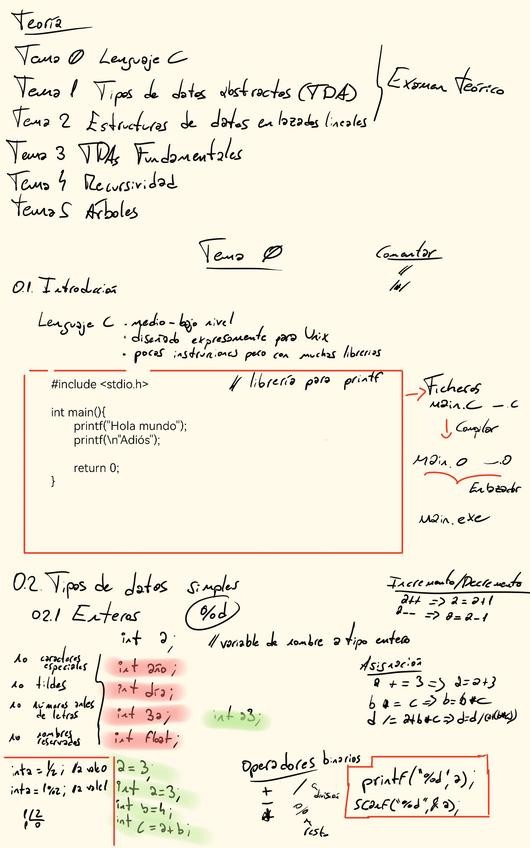 Teoría
Tema 0 Lenguaje C
Tema 1 Tipos de datos abstractos (TDA)
Tema 2 Estructuras de datos enlazados lineales
Examen Teórico
Tema 3 TDAs Fundamentales
Tema 4 Recursividad
Tema 5 Arboles
Tema 0
Comentar
//
0.1. Introducción
Lenguaje C · medio-bajo nivel
· diseñado expresamente para Unix
· pocas instrucciones pero con muchas librerias
#include <stdio.h>
// librería para printf
int main(){
printf("Hola mundo");
printf(\n"Adiós");
return 0;
}
Ficheros
main.c _.c
Compilar
main.o _.o
Enlazador
main.exe
0.2. Tipos de datos simples
0.2.1 Enteros
%d
int a; // variable de nombre a tipo entero
Incremento/Decremento
a++ => a=a+1
a-- => a=a-1
no caracteres especiales
no tildes
no números antes de letras
no nombres reservados
int año;
int día;
int 3a;
int a3;
int float;
Asignación
a += 3 => a=a+3
b *= c => b=b*c
d /= a+b*c => d=d/(a+b*c)
int a = 1/2; // a vale 0
int a = 1%2; // a vale 1
1 2
1 0
a=3;
int a=3;
int b=4;
int c=a+b;
Operadores binarios
+ / división
- % resto
*
printf("%d",a);
scanf("%d",&a);